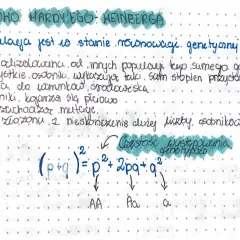 WO HARDY'EGO-WEINBERGA
ulacja jest w stanie równowagi genetycznej
odizolowana od innych populacji tego samego
ystkie osobniki wykazują taki sam stopień przysto
ia do warunków środowiska
niki, kojarzą się płciowo
zachodzą mutacje
złożona z nieskończenie dużej liczby osobników
częstość występowania
genotypów
(p+q)² = p² + 2pq + q²
AA Aa a